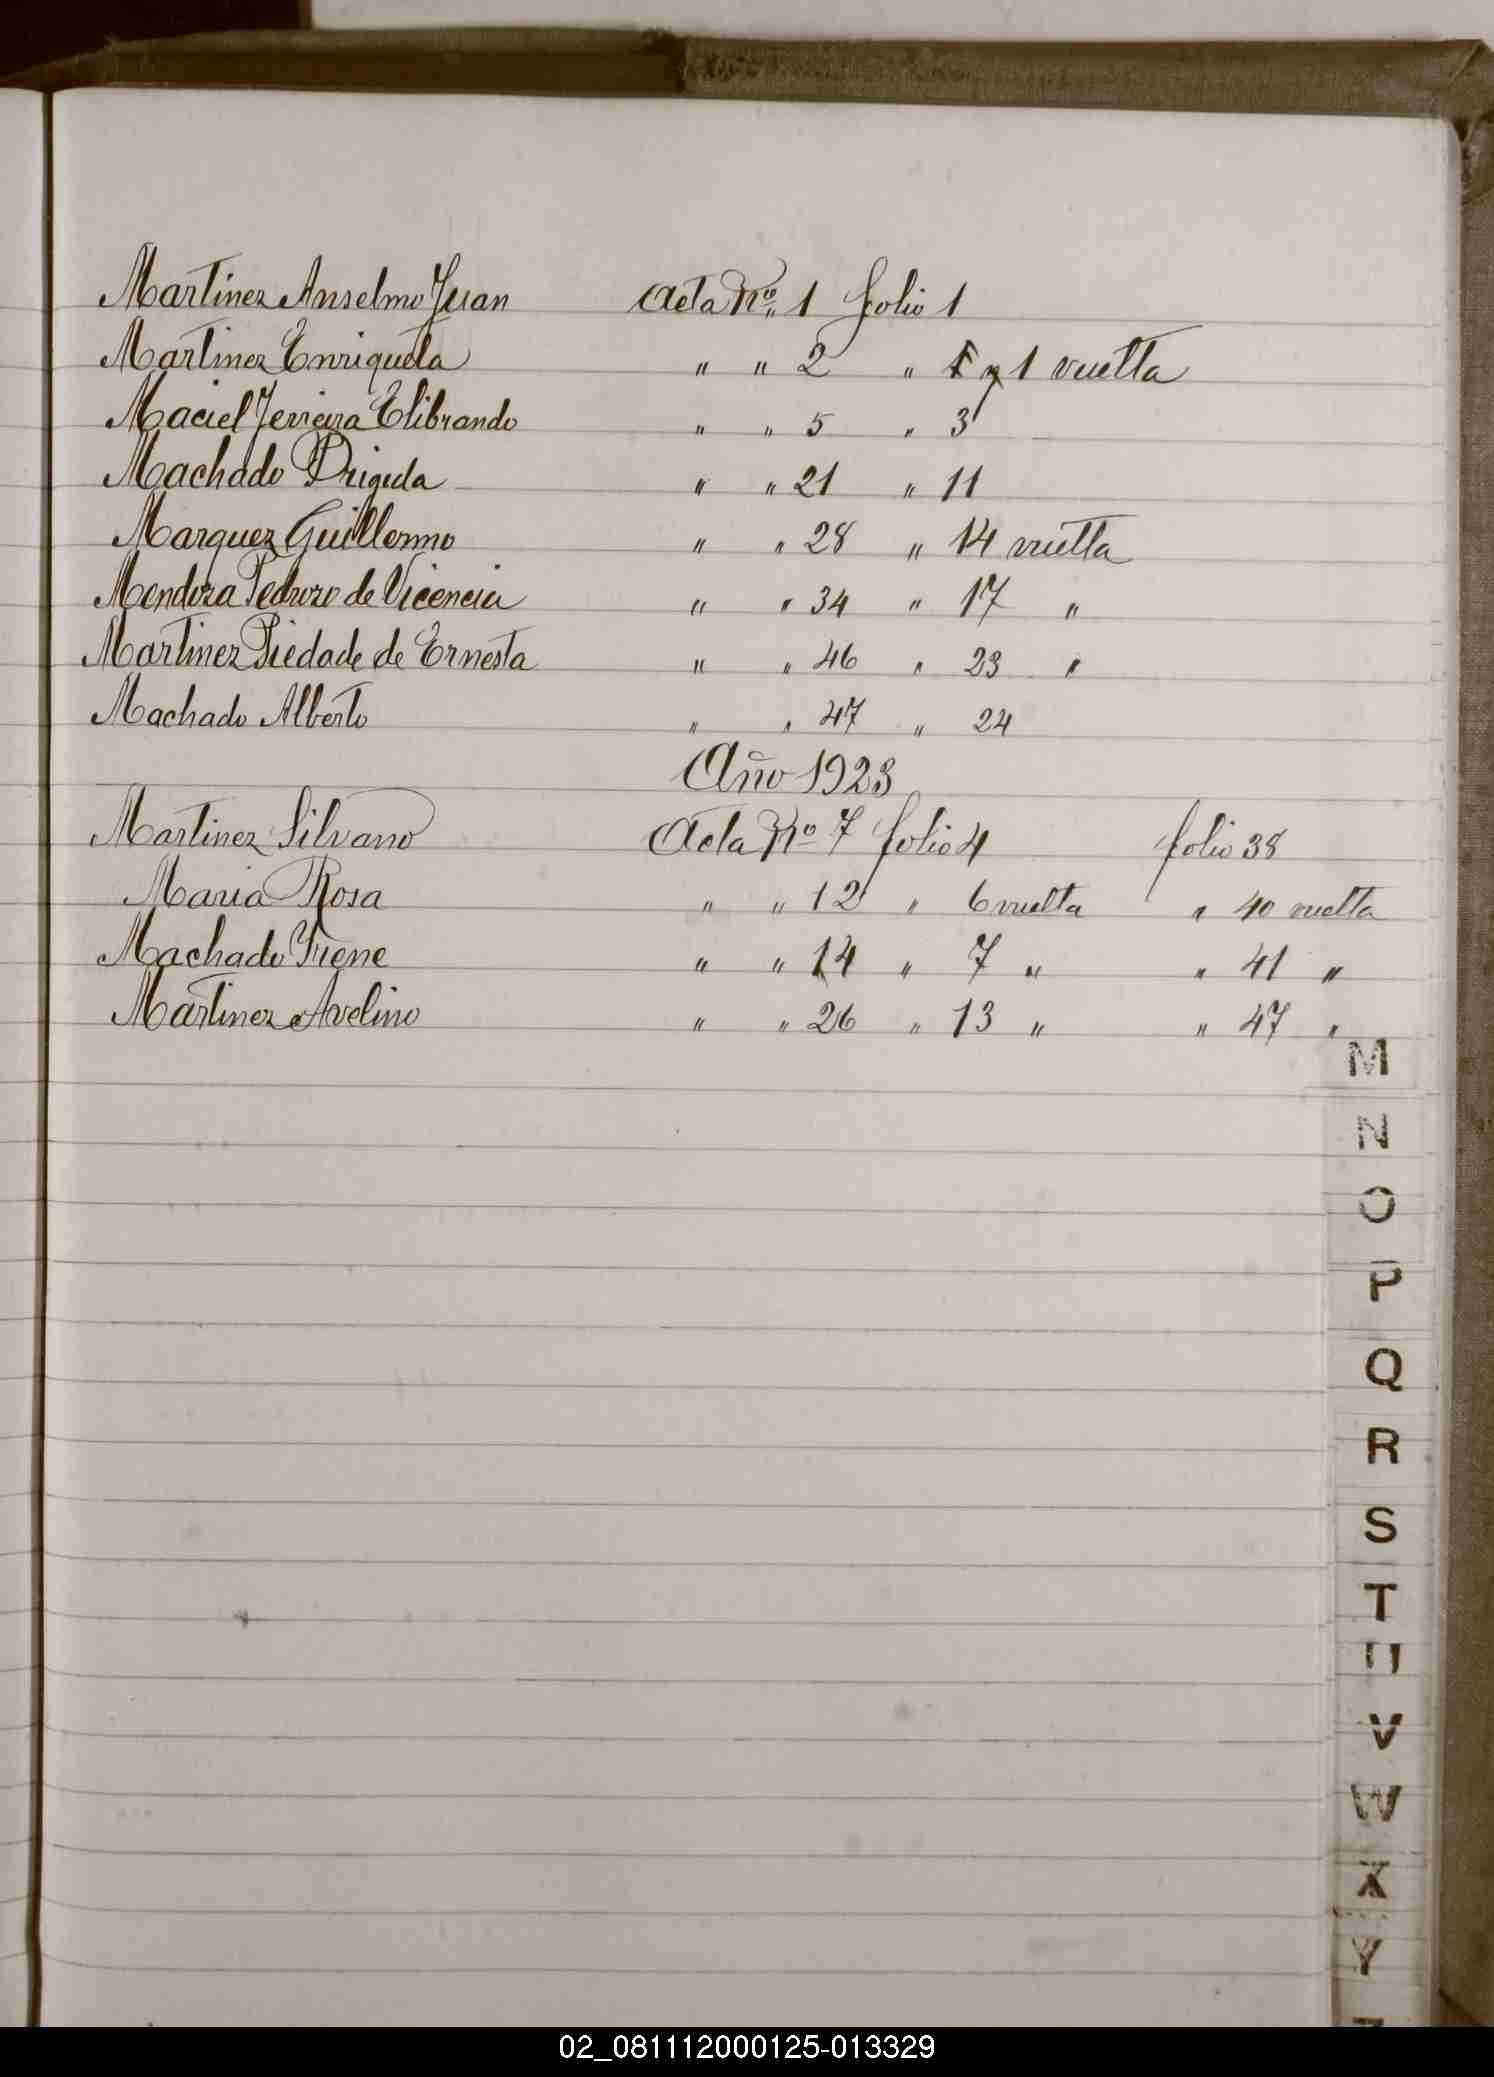 Martinez Anselmo Juan Acta Nº 1 folio 1
Martinez Enriqueta " " 2 " 1 vuelta
Maciel Ferreira Elibrando " " 5 " 3
Machado Brigida " " 21 " 11
Marquez Guillermo " " 28 " 14 vuelta
Mendoza Pedrozo de Vicencia " " 34 " 17 "
Martinez Piedade de Ernesta " " 46 " 23 "
Machado Alberto " " 47 " 24
Año 1923
Martinez Silvano Acta Nº 7 folio 4 folio 38
Maria Rosa " " 12 " 6 vuelta " 40 vuelta
Machado Yrene " " 14 " 7 " " 41 "
Martinez Avelino " " 26 " 13 " " 47 "
M
N
O
P
Q
R
S
T
U
V
W
X
Y
02_081112000125-013329